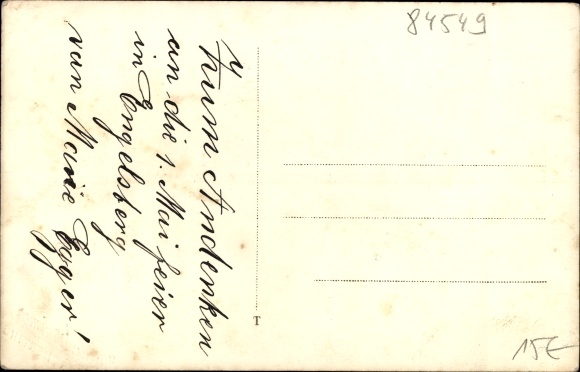 84549
Zum Andenken
an die 1. Mai feier
in Engelsberg
von Marie Egger!
T
15€